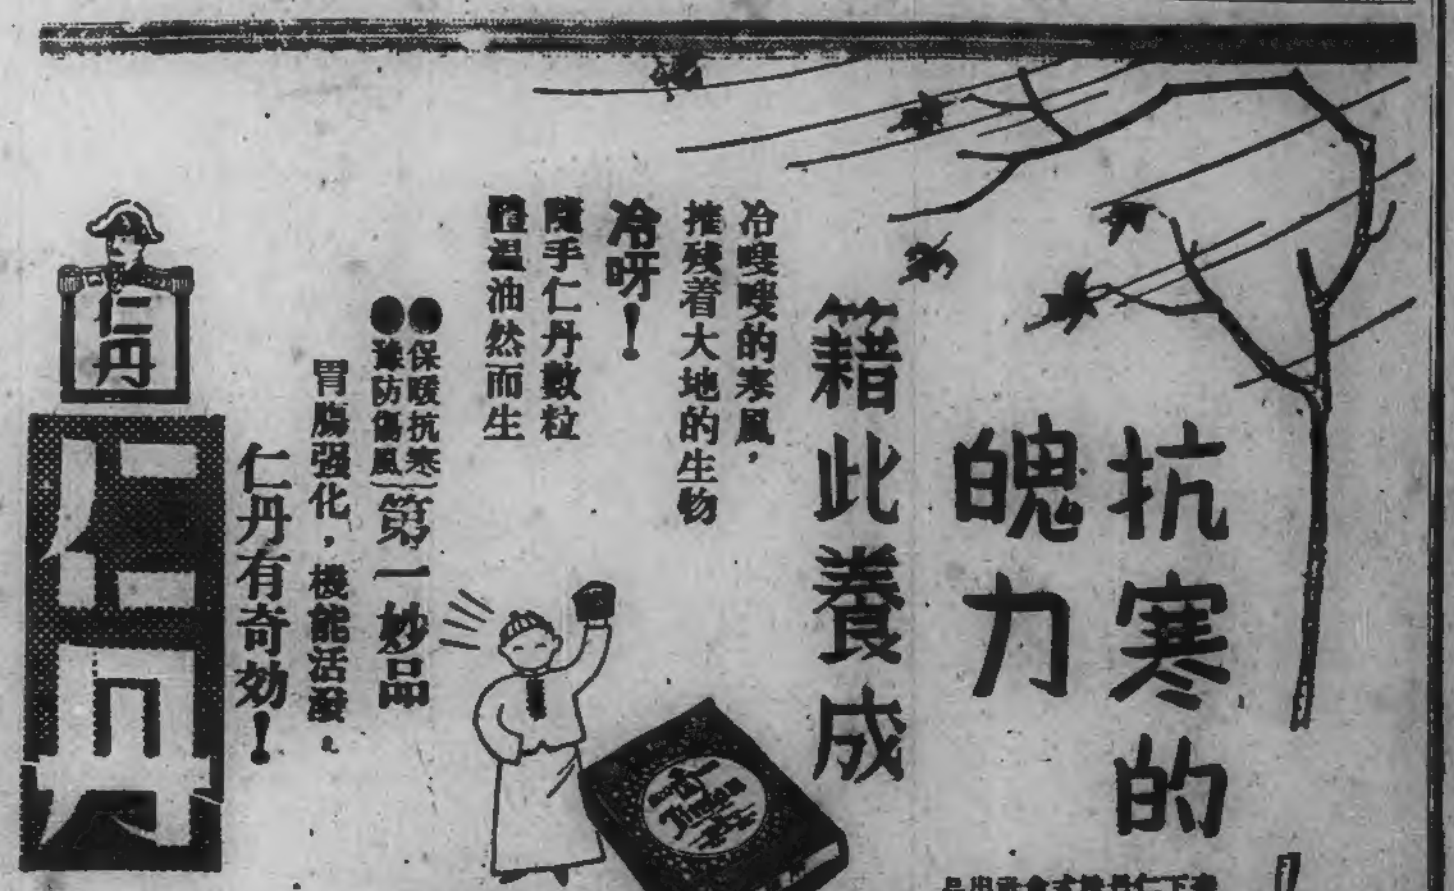 抗寒的
魄力
籍此養成
冷嗖嗖的寒風，
摧残着大地的生物
冷呀！
隨手仁丹數粒
體温油然而生
●保暖抗寒
●豫防傷風
第一妙品
胃膓强化，機能活潑。
仁丹有奇効！
仁丹
仁丹
Jintan